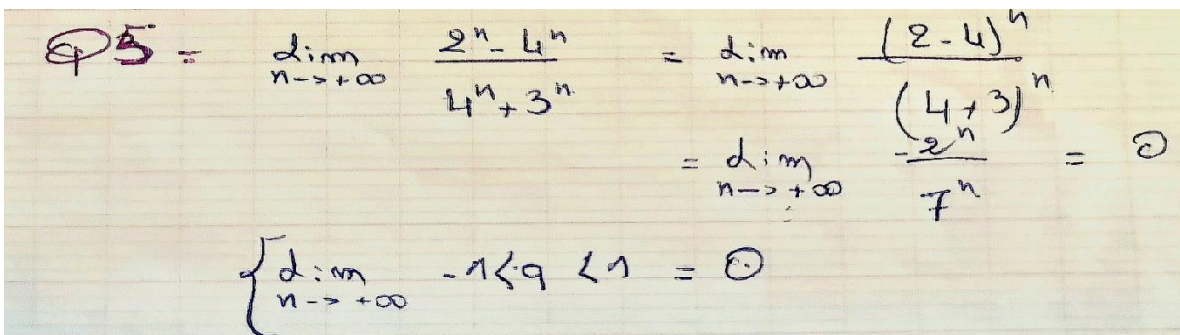 Q5 = lim n->+∞ (2ⁿ - 4ⁿ)/(4ⁿ + 3ⁿ) = lim n->+∞ (2-4)ⁿ/(4+3)ⁿ
= lim n->+∞ -2ⁿ/7ⁿ = 0
{ lim n->+∞ -1<q<1 = 0